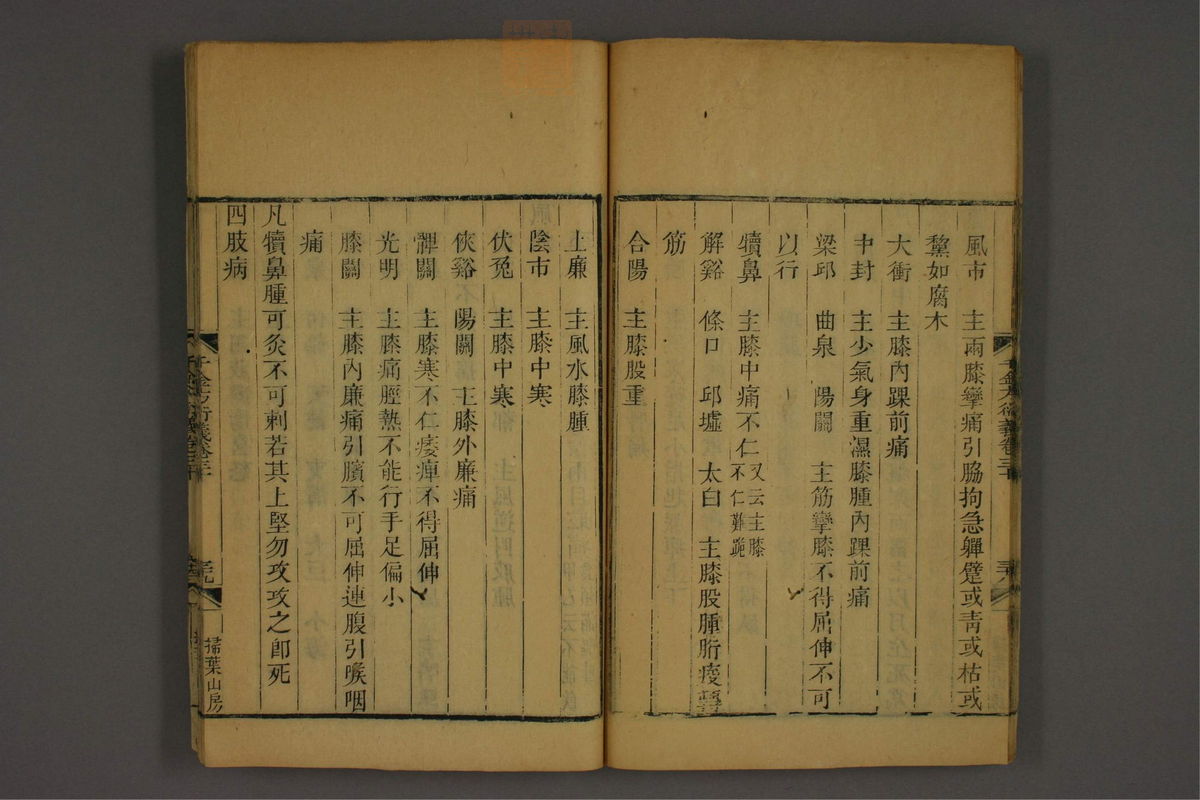 風市　主兩膝攣痛引脇拘急軃躄或青或枯或
黧如腐木
大衝　主膝內踝前痛
中封　主少氣身重濕膝腫內踝前痛
梁邱　曲泉　陽關　主筋攣膝不得屈伸不可
以行
犢鼻　主膝中痛不仁
又云主膝
不仁難跪
解谿　條口　邱墟　太白　主膝股腫胻痠轉
筋
合陽　主膝股重
千金方衍義卷三十
上廉　主風水膝腫
陰市　主膝中寒
伏兔　主膝中寒
俠谿　陽關　主膝外廉痛
髀關　主膝寒不仁痿痺不得屈伸
光明　主膝痛脛熱不能行手足偏小
膝關　主膝內廉痛引臏不可屈伸連腹引喉咽
痛
凡犢鼻腫可灸不可刺若其上堅勿攻攻之卽死
四肢病
千金方衍義卷三十
掃葉山房